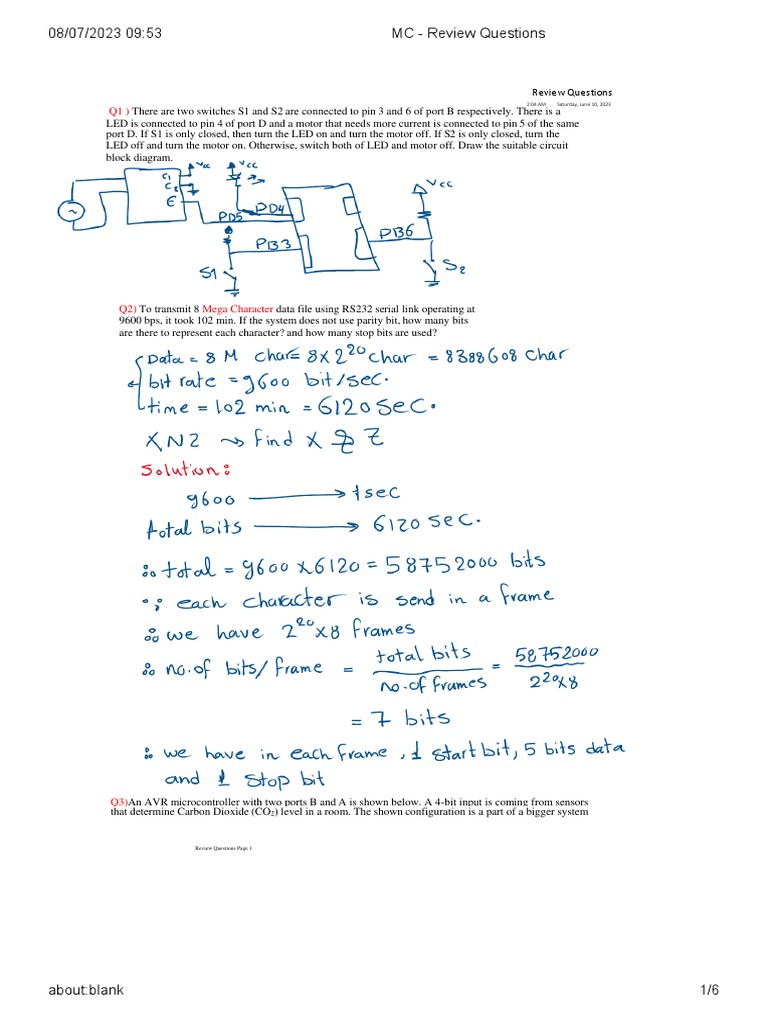 08/07/2023 09:53
MC - Review Questions
Review Questions
2:04 AM Saturday, June 10, 2023
Q1 ) There are two switches S1 and S2 are connected to pin 3 and 6 of port B respectively. There is a
LED is connected to pin 4 of port D and a motor that needs more current is connected to pin 5 of the same
port D. If S1 is only closed, then turn the LED on and turn the motor off. If S2 is only closed, turn the
LED off and turn the motor on. Otherwise, switch both of LED and motor off. Draw the suitable circuit
block diagram.
Vcc
Vcc
C1
C2
E
Vcc
PD4
PD5
PB6
PB3
S1
S2
Q2) To transmit 8 Mega Character data file using RS232 serial link operating at
9600 bps, it took 102 min. If the system does not use parity bit, how many bits
are there to represent each character? and how many stop bits are used?
Data = 8 M char = 8 X 2^20 char = 8388608 char
bit rate = 9600 bit/sec.
time = 102 min = 6120 sec.
X N Z → Find X & Z
Solution:
9600 → 1 sec
total bits → 6120 sec.
∴ total = 9600 X 6120 = 58752000 bits
∵ each character is send in a frame
∴ we have 2^20 x 8 frames
∴ no. of bits/frame = total bits / no. of frames = 58752000 / 2^20 x 8
= 7 bits
∴ we have in each frame, 1 start bit, 5 bits data
and 1 stop bit
Q3)An AVR microcontroller with two ports B and A is shown below. A 4-bit input is coming from sensors
that determine Carbon Dioxide (CO₂) level in a room. The shown configuration is a part of a bigger system
Review Questions Page 1
about:blank
1/6